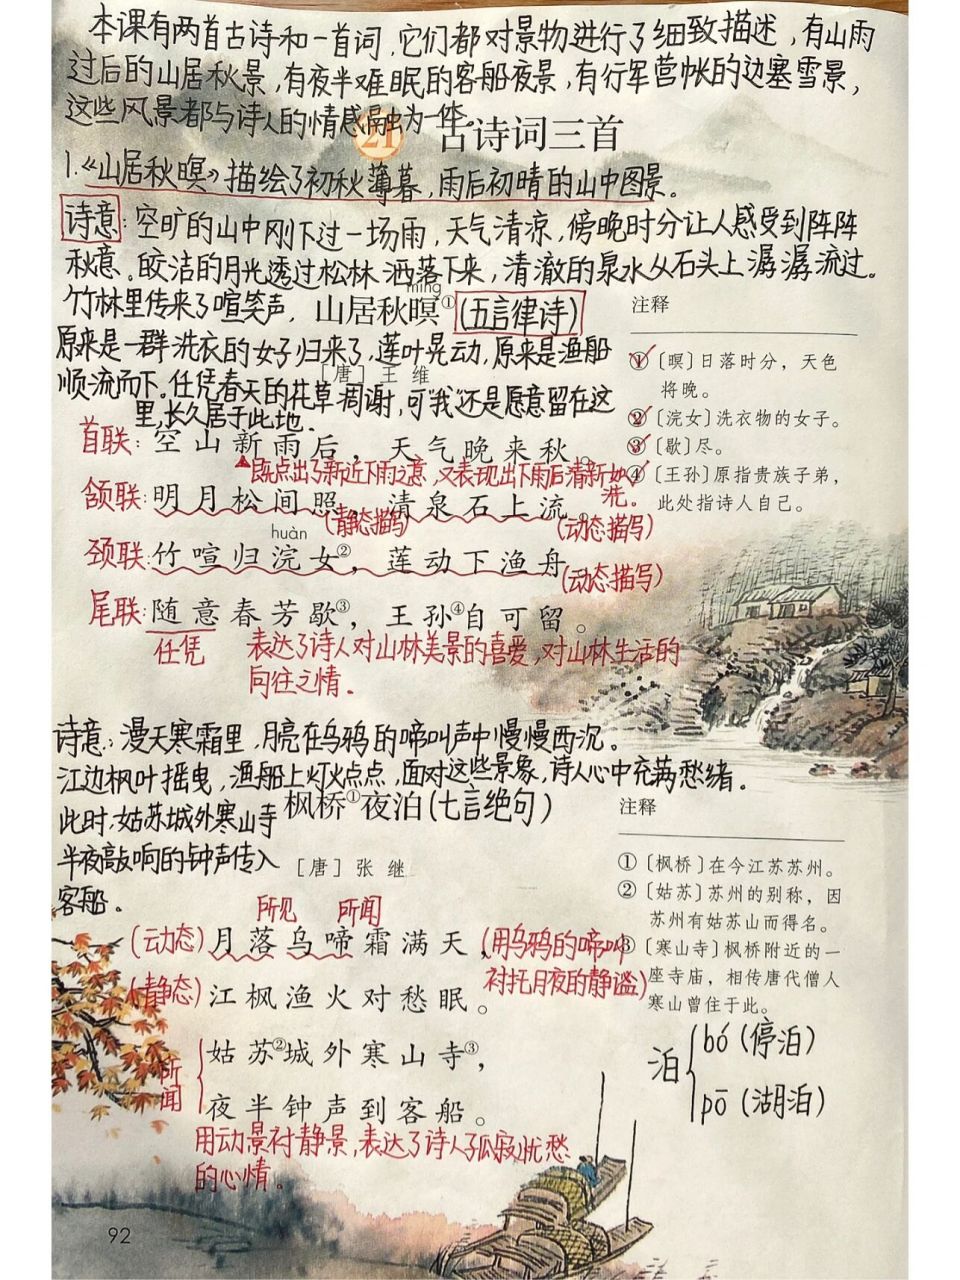 本课有两首古诗和一首词，它们都对景物进行了细致描述，有山雨
过后的山居秋景，有夜半难眠的客船夜景，有行军营帐的边塞雪景，
这些风景都与诗人的情感融为一体。
21 古诗词三首
1.《山居秋暝》描绘了初秋薄暮，雨后初晴的山中图景。
诗意：空旷的山中刚下过一场雨，天气清凉，傍晚时分让人感受到阵阵
秋意。皎洁的月光透过松林洒落下来，清澈的泉水从石头上潺潺流过。
竹林里传来了喧笑声，
míng
山居秋暝①（五言律诗）
原来是一群洗衣的女子归来了，莲叶晃动，原来是渔船
[唐] 王 维
顺流而下。任凭春天的花草凋谢，可我还是愿意留在这
里，长久居于此地。
首联：空山新雨后，天气晚来秋。
既点出了新近下雨之意，又表现出下雨后清新如
洗。
颔联：明月松间照，清泉石上流。
（静态描写）（动态描写）
huàn
颈联：竹喧归浣女②，莲动下渔舟
（动态描写）
尾联：随意春芳歇③，王孙④自可留。
任凭 表达了诗人对山林美景的喜爱，对山林生活的
向往之情。
注释
①〔暝〕日落时分，天色
将晚。
②〔浣女〕洗衣物的女子。
③〔歇〕尽。
④〔王孙〕原指贵族子弟，
此处指诗人自己。
诗意：漫天寒霜里，月亮在乌鸦的啼叫声中慢慢西沉。
江边枫叶摇曳，渔船上灯火点点，面对这些景象，诗人心中充满愁绪。
此时，姑苏城外寒山寺
半夜敲响的钟声传入
客船。
枫桥①夜泊（七言绝句）
[唐] 张 继
所见 所闻
（动态）月落乌啼霜满天，（用乌鸦的啼叫
衬托月夜的静谧）
（静态）江枫渔火对愁眠。
所闻
姑苏②城外寒山寺③，
夜半钟声到客船。
用动景衬静景，表达了诗人孤寂忧愁
的心情。
注释
①〔枫桥〕在今江苏苏州。
②〔姑苏〕苏州的别称，因
苏州有姑苏山而得名。
③〔寒山寺〕枫桥附近的一
座寺庙，相传唐代僧人
寒山曾住于此。
泊
bó（停泊）
pō（湖泊）
92